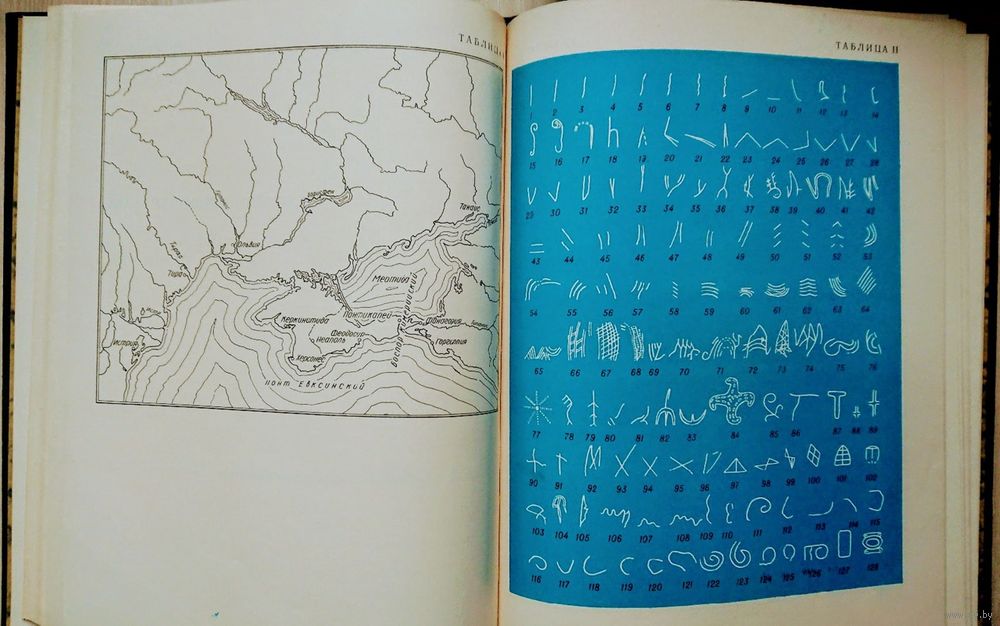 ТАБЛИЦА
Танаис
Ольвия
Тирас
Тира
Меотида
Пантикапей
Фанагория
Керкинитида
Феодосия
Неаполь
Горгиппия
Истрия
Херсонес
Понт Евксинский
ТАБЛИЦА II
1 2 3 4 5 6 7 8 9 10 11 12 13 14
15 16 17 18 19 20 21 22 23 24 25 26 27 28
29 30 31 32 33 34 35 36 37 38 39 40 41 42
43 44 45 46 47 48 49 50 51 52 53
54 55 56 57 58 59 60 61 62 63 64
65 66 67 68 69 70 71 72 73 74 75 76
77 78 79 80 81 82 83 84 85 86 87 88 89
90 91 92 93 94 95 96 97 98 99 100 101 102
103 104 105 106 107 108 109 110 111 112 113 114 115
116 117 118 119 120 121 122 123 124 125 126 127 128